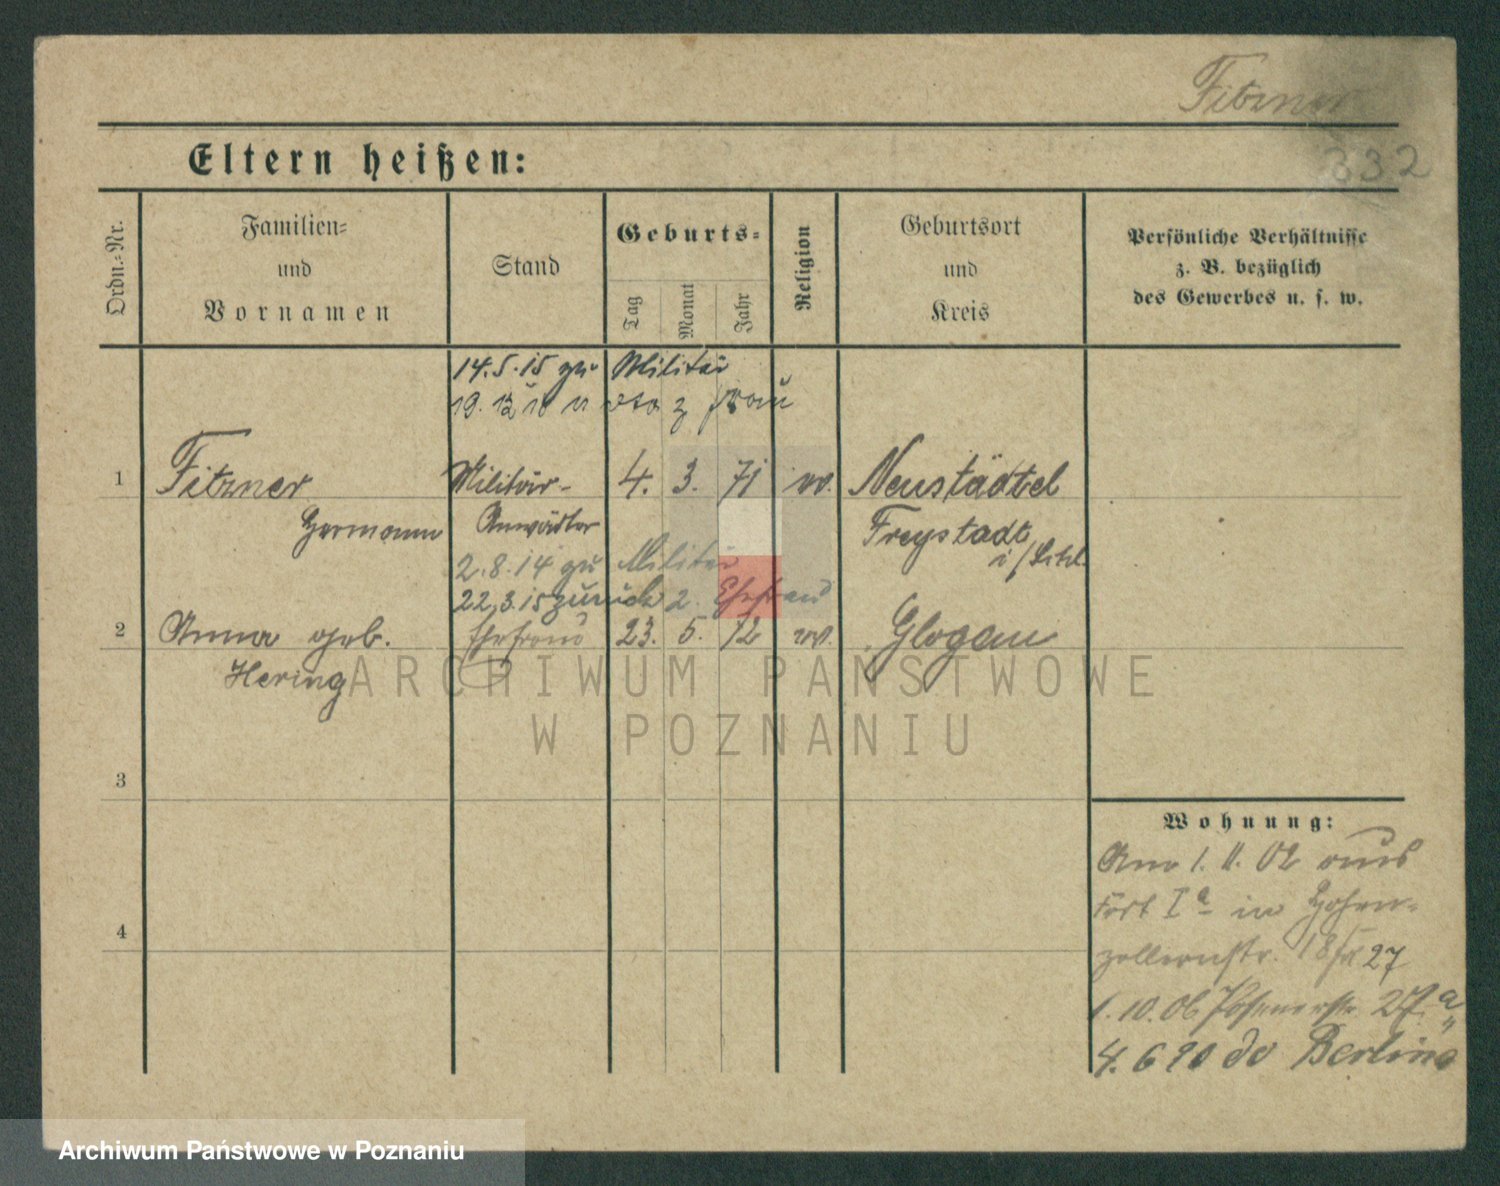 Fitzner
332
Eltern heißen:
Ordn.-Nr.
Familien-
und
Vornamen
Stand
Geburts-
Tag
Monat
Jahr
Religion
Geburtsort
und
Kreis
Persönliche Verhältnisse
z. B. bezüglich
des Gewerbes u. s. w.
14.5.15 zu Militär
19. 12 18 v z Frau
1 Fitzner Militär- 4. 3. 71 ev. Neustädtel
Hermann Anwärter Freystadt
i/Schl.
2.8.14 zu Militär
22.3.15 zurück z. Ehefrau
2 Anna geb. Ehefrau 23. 5. 72 ev. Glogau
Hering
ARCHIWUM PAŃSTWOWE
W POZNANIU
3
4
Wohnung:
Am 1. 11. 02 aus
Fort Ia in Hohen-
zollernstr. 18 27
1.10.06 Posenerstr. 27a
4. 6 20 do Berlin
Archiwum Państwowe w Poznaniu